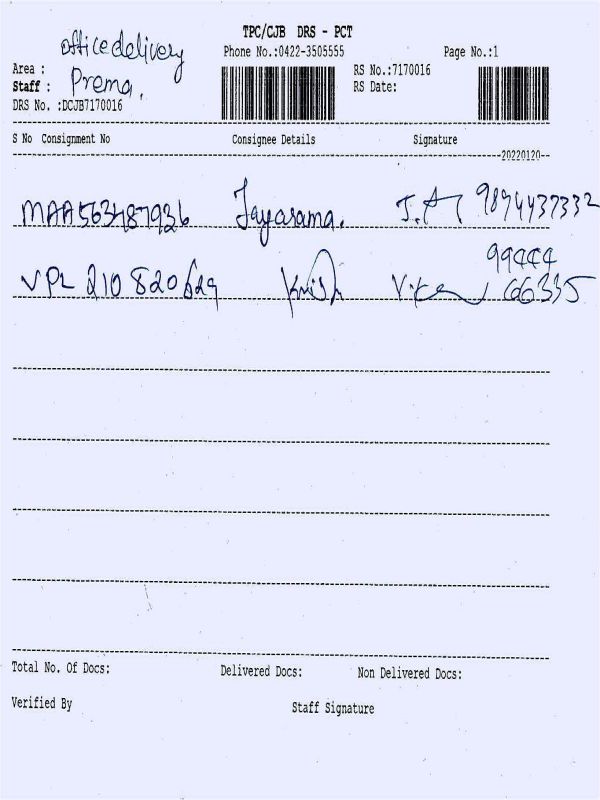 TPC/CJB DRS - PCT
office delivery
Phone No.:0422-3505555 Page No.:1
Area :
RS No.:7170016
Staff : Prema.
RS Date:
DRS No. :DCJB7170016
S No Consignment No Consignee Details Signature
20220120
MAA563487936 Jayarama. J.A 9894437332
99444
VPL 210820629 Krish 66335
Total No. Of Docs: Delivered Docs: Non Delivered Docs:
Verified By Staff Signature